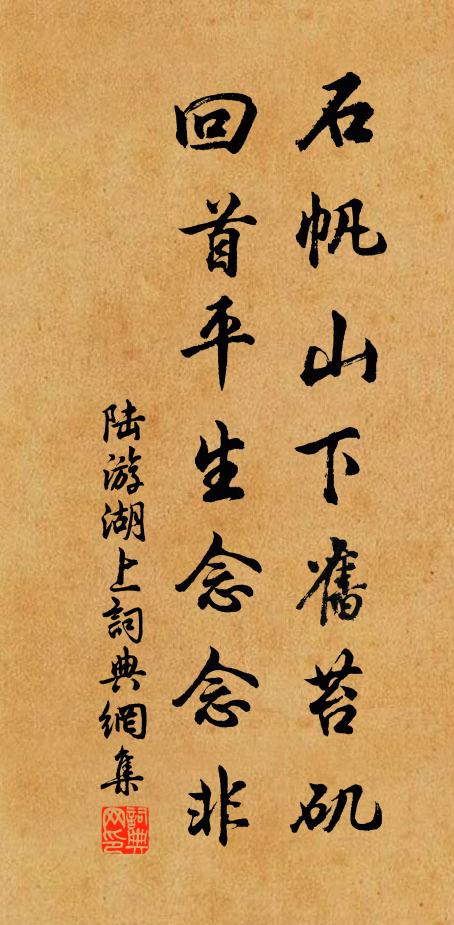 石帆山下舊苔矶
回首平生念念非
陆游湖上詞典網集
詞典网印